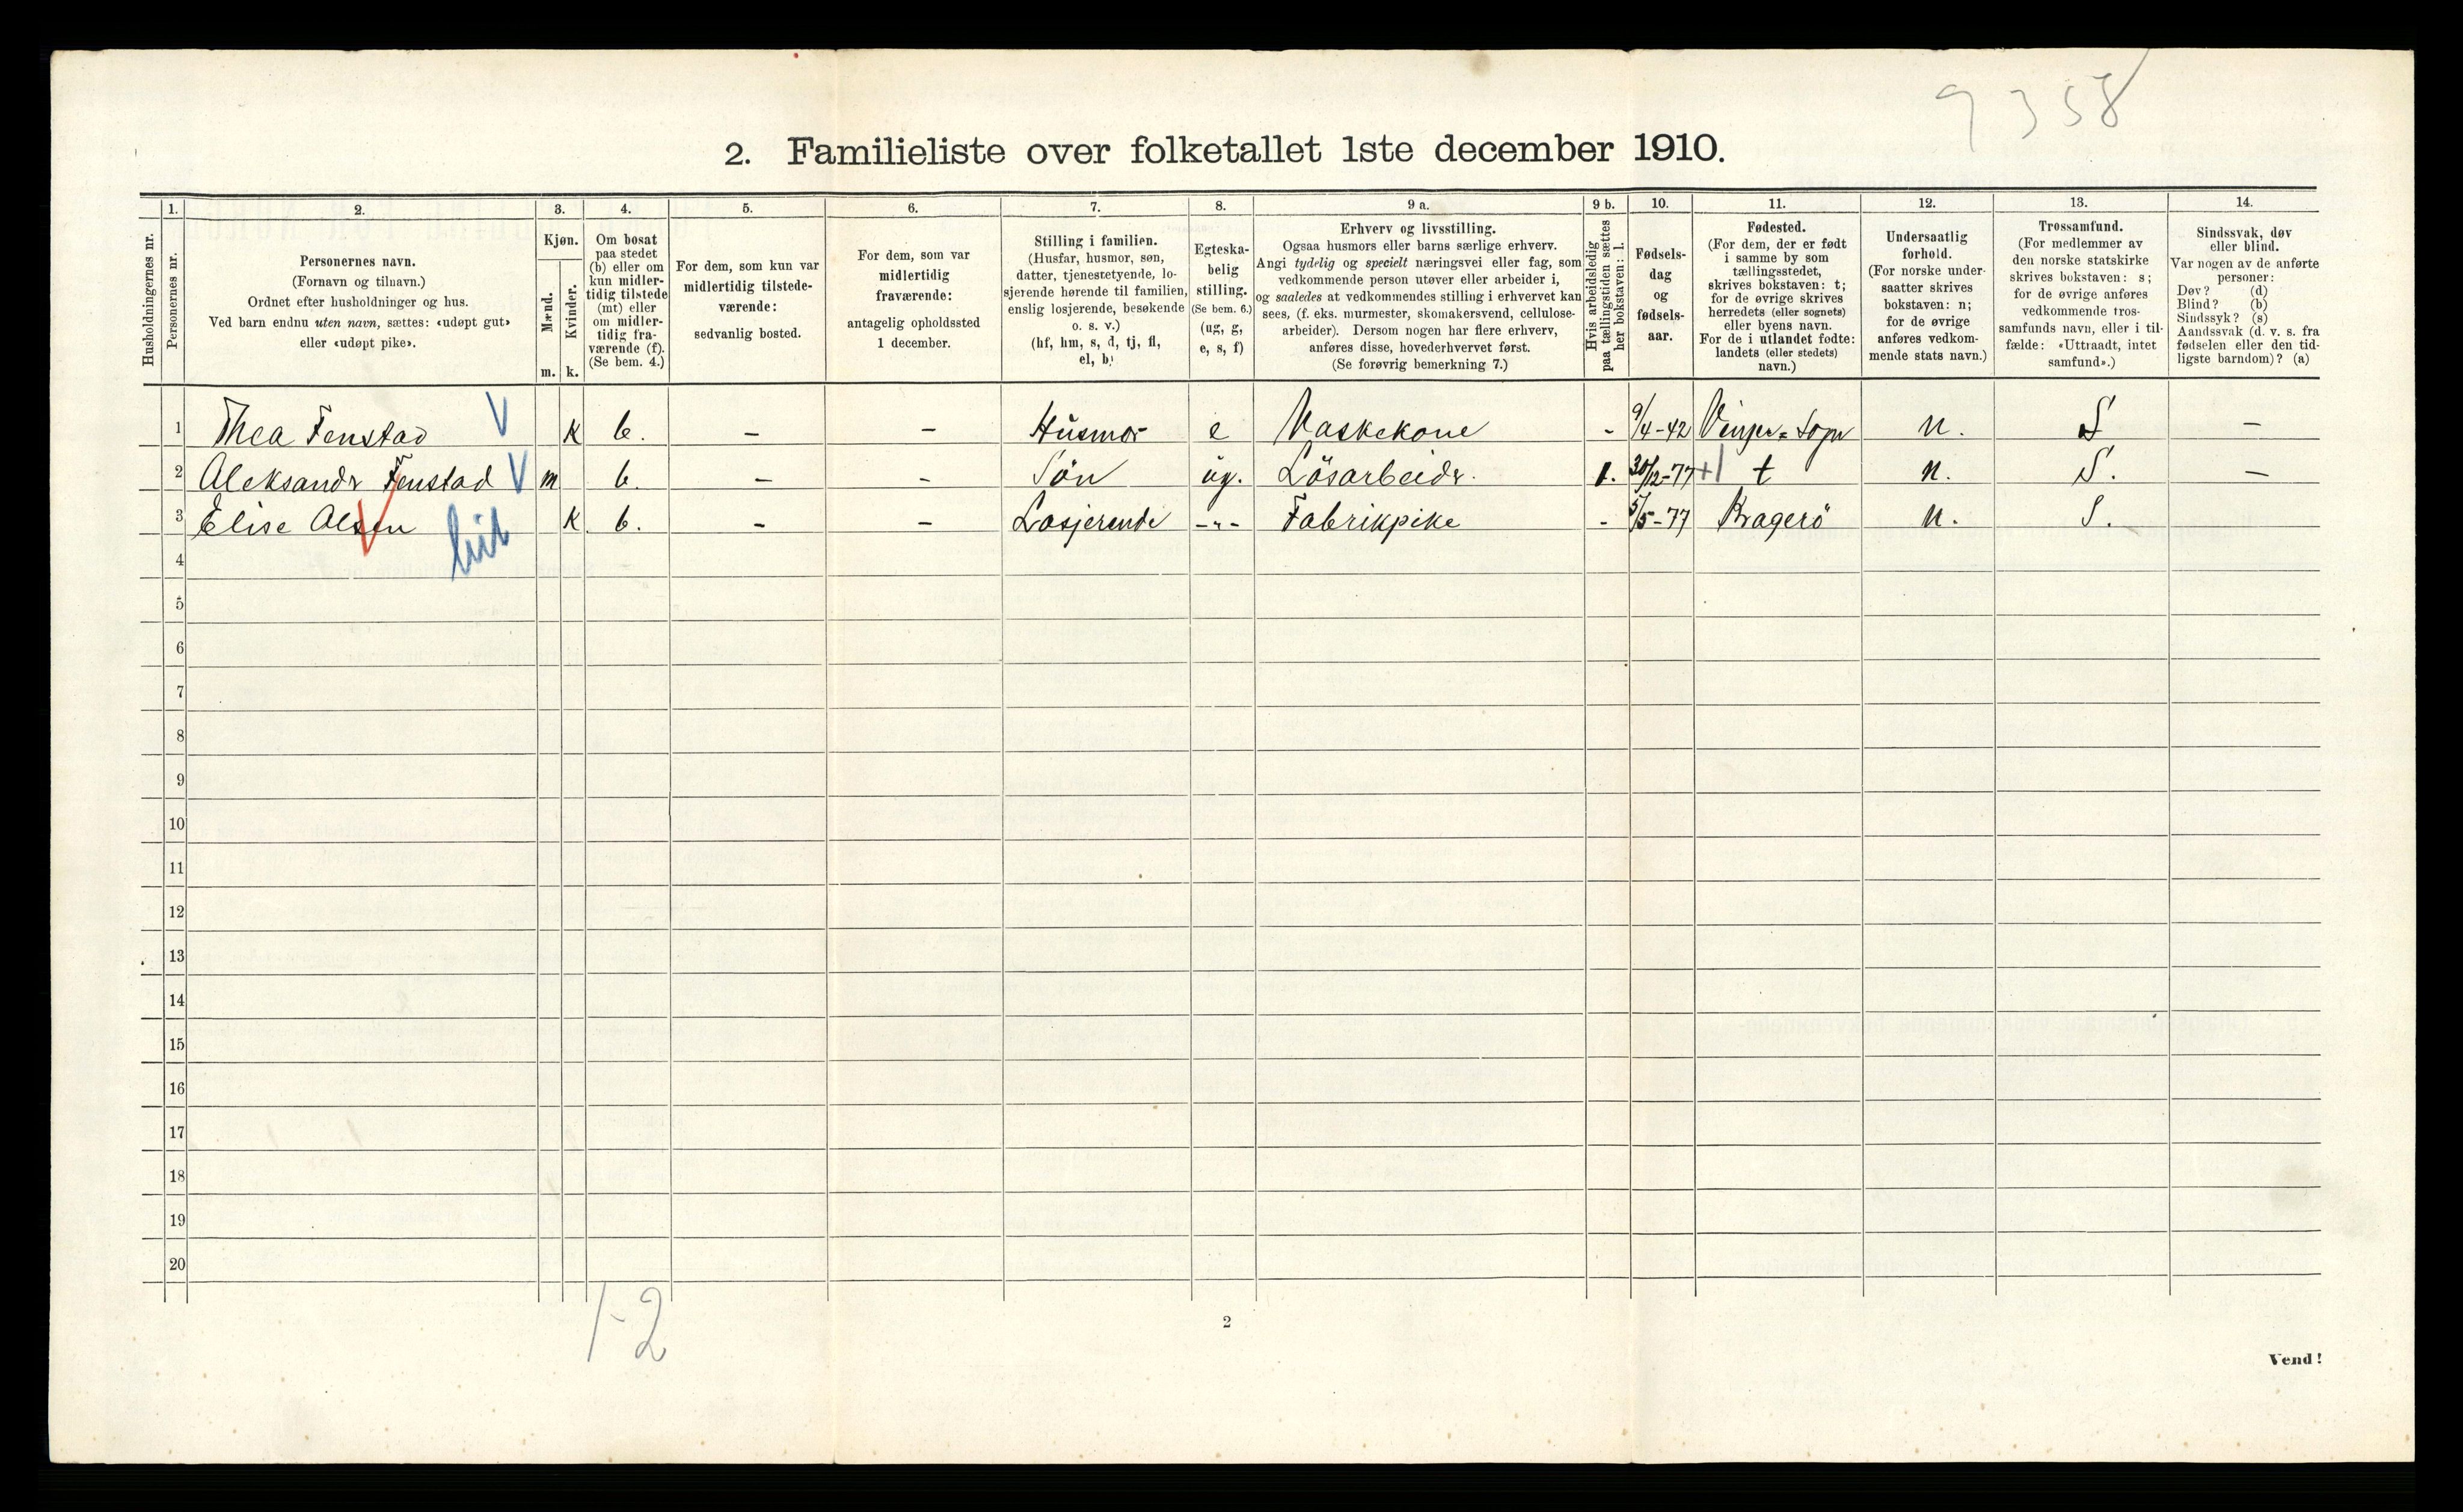 9358
2. Familieliste over folketallet 1ste december 1910.
1. 2. 3. 4. 5. 6. 7. 8. 9 a. 9 b. 10. 11. 12. 13. 14.
Husholdningernes nr.
Personernes nr.
Personernes navn.
(Fornavn og tilnavn.)
Ordnet efter husholdninger og hus.
Ved barn endnu uten navn, sættes: «udøpt gut»
eller «udøpt pike».
Kjøn.
Mænd.
Kvinder.
m. k.
Om bosat
paa stedet
(b) eller om
kun midler-
tidig tilstede
(mt) eller
om midler-
tidig fra-
værende (f).
(Se bem. 4.)
For dem, som kun var
midlertidig tilstede-
værende:
sedvanlig bosted.
For dem, som var
midlertidig
fraværende:
antagelig opholdssted
1 december.
Stilling i familien.
(Husfar, husmor, søn,
datter, tjenestetyende, lo-
sjerende hørende til familien,
enslig losjerende, besøkende
o. s. v.)
(hf, hm, s, d, tj, fl,
el, b)
Egteska-
belig
stilling.
(Se bem. 6.)
(ug, g,
e, s, f)
Erhverv og livsstilling.
Ogsaa husmors eller barns særlige erhverv.
Angi tydelig og specielt næringsvei eller fag, som
vedkommende person utøver eller arbeider i,
og saaledes at vedkommendes stilling i erhvervet kan
sees, (f. eks. murmester, skomakersvend, cellulose-
arbeider). Dersom nogen har flere erhverv,
anføres disse, hovederhvervet først.
(Se forøvrig bemerkning 7.)
Hvis arbeidsledig
paa tællingstiden sættes
her bokstaven: l.
Fødsels-
dag
og
fødsels-
aar.
Fødested.
(For dem, der er født
i samme by som
tællingsstedet,
skrives bokstaven: t;
for de øvrige skrives
herredets (eller sognets)
eller byens navn.
For de i utlandet fødte:
landets (eller stedets)
navn.)
Undersaatlig
forhold.
(For norske under-
saatter skrives
bokstaven: n;
for de øvrige
anføres vedkom-
mende stats navn.)
Trossamfund.
(For medlemmer av
den norske statskirke
skrives bokstaven: s;
for de øvrige anføres
vedkommende tros-
samfunds navn, eller i til-
fælde: «Uttraadt, intet
samfund».)
Sindssvak, døv
eller blind.
Var nogen av de anførte
personer:
Døv? (d)
Blind? (b)
Sindssyk? (s)
Aandssvak (d. v. s. fra
fødselen eller den tid-
ligste barndom)? (a)
1 Thea Fenstad V K b. - - Husmor e Vaskekone - 9/4-42 Vinger=Sogn n. S -
2 Aleksandr Fenstad V m b. - - Sön ug. Lösarbeidr. l. 30/12-77 +1 t n. S. -
3 Elise Olsen V K. b. - - Losjerende -"- Fabrikpike - 5/5-77 Kragerö n. S.
4
5
6
7
8
9
10
11
12
13
14
15
16
17
18
19
20
1-2
2
Vend!